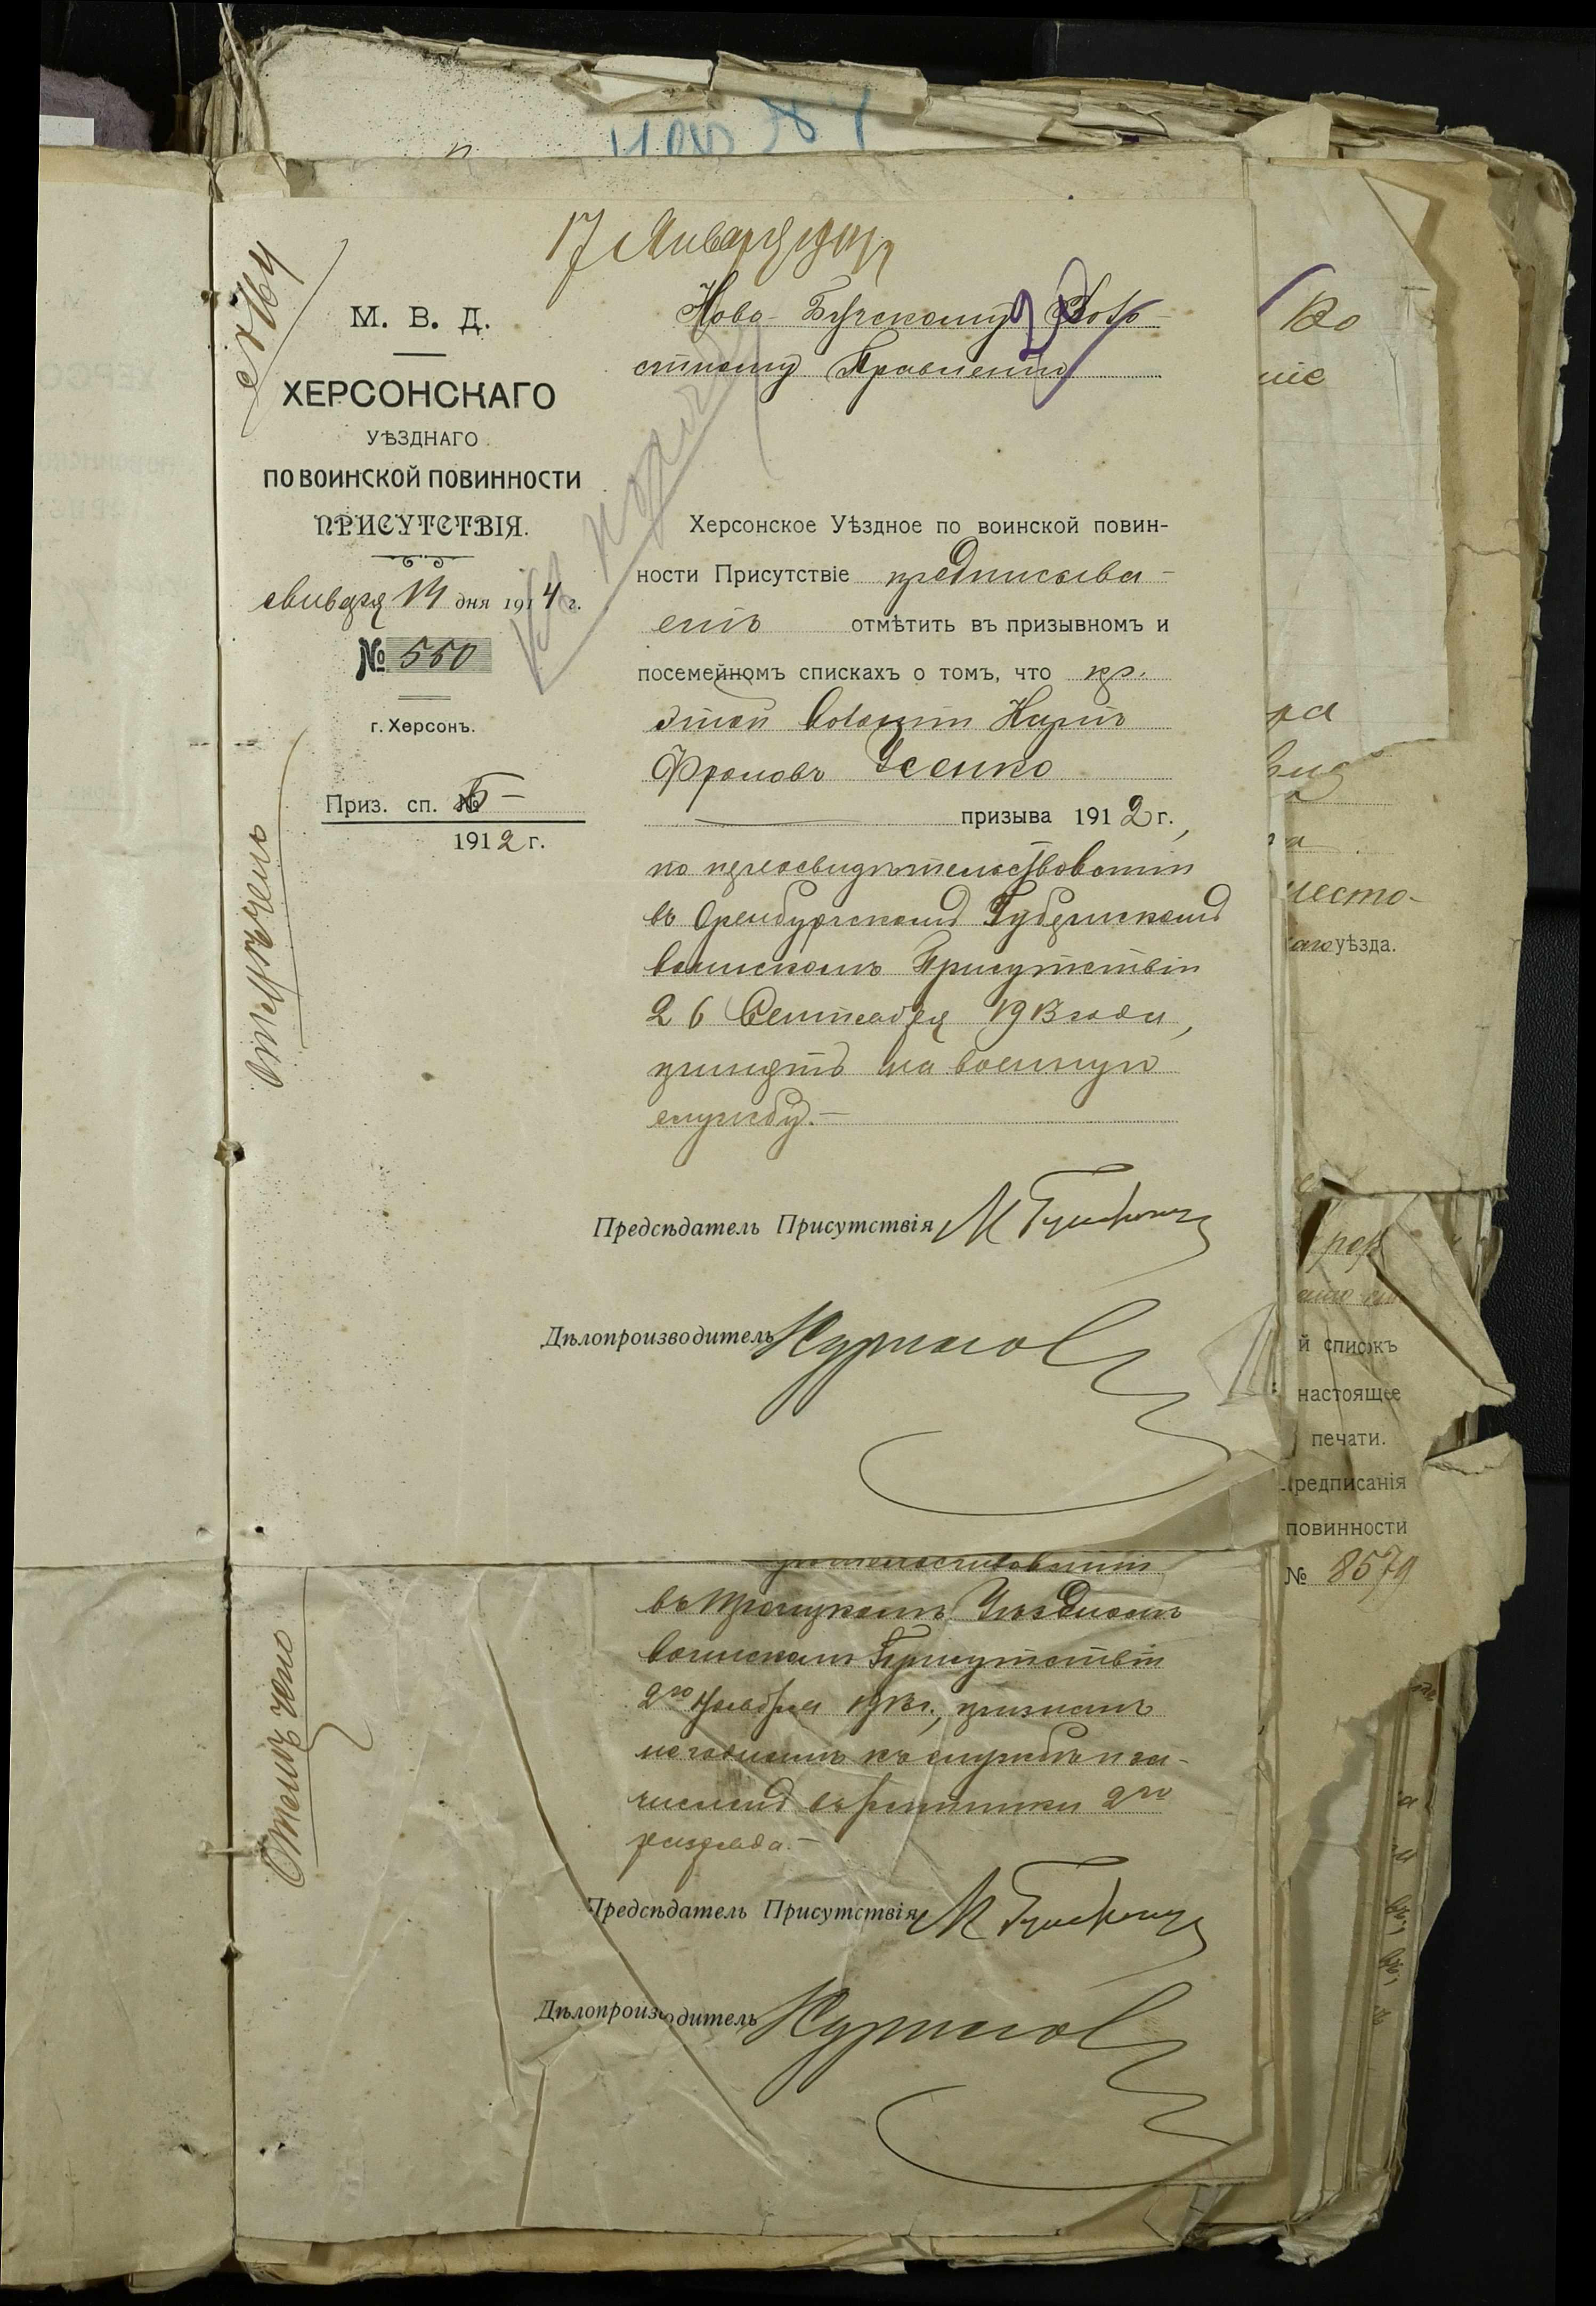 17 Января 1914 г
М. В. Д.
ХЕРСОНСКАГО
УѢЗДНАГО
ПО ВОИНСКОЙ ПОВИННОСТИ
ПРИСУТСТВІЯ.
Января 14 дня 1914 г.
№ 550
г. Херсонъ.
Приз. сп. № 5-
1912 г.
Отмѣчено
Ново-Бугскому Воло-
стному Правленію
Херсонское Уѣздное по воинской повин-
ности Присутствіе предписыва-
етъ отмѣтить въ призывномъ и
посемейномъ спискахъ о томъ, что кр.
Фроловъ Усенко
призыва 1912 г.,
по переосвидѣтельствованіи
въ Оренбургскомъ Губернскомъ
воинскомъ Присутствіи
26 Сентября 1913 года,
принятъ на военную
службу.-
Предсѣдатель Присутствія
Дѣлопроизводитель
въ Уѣздномъ
воинскомъ Присутствіи
2го Ноября 1913 г., признанъ
негоднымъ къ службѣ и за-
численъ въ ратники 2го
разряда.-
Отмѣчено
Предсѣдатель Присутствія
Дѣлопроизводитель
Во
ніе
место-
каго уѣзда.
й списокъ
настоящее
печати.
предписанія
повинности
№ 8579